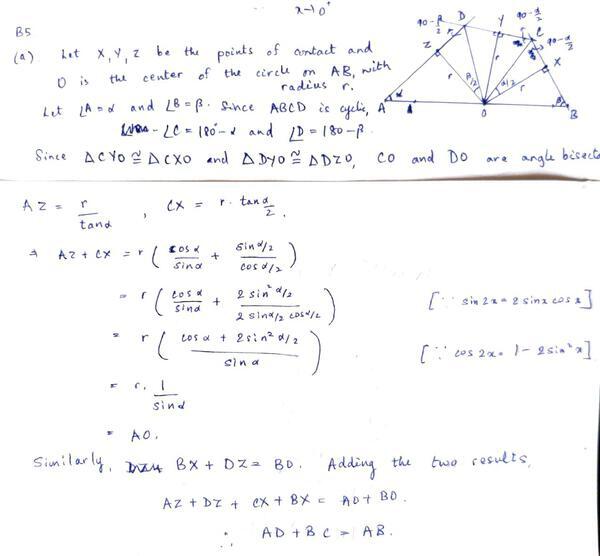 x→0⁺
B5
(a) Let X, Y, Z be the points of contact and
O is the center of the circle on AB, with
radius r.
Let ∠A=α and ∠B=β. Since ABCD is cyclic,
∠C = 180°-α and ∠D = 180-β.
Since △CYO ≅ △CXO and △DYO ≅ △DZO, CO and DO are angle bisecto
90-β/2 D Y 90-α/2 C 90-α/2
Z X
r r r r
β/2 α/2
A α O β B
AZ = r/tanα , CX = r·tan α/2.
⇒ AZ + CX = r ( cosα/sinα + sinα/2/cosα/2 )
= r ( cosα/sinα + 2 sin²α/2/2 sinα/2 cosα/2 ) [∵ sin2x = 2 sinx cosx]
= r ( cosα + 2sin²α/2/sinα ) [∵ cos2x = 1-2sin²x]
= r. 1/sinα
= AO.
Similarly, BX + DZ = BO. Adding the two results,
AZ + DZ + CX + BX = AO + BO.
∴ AD + BC = AB.